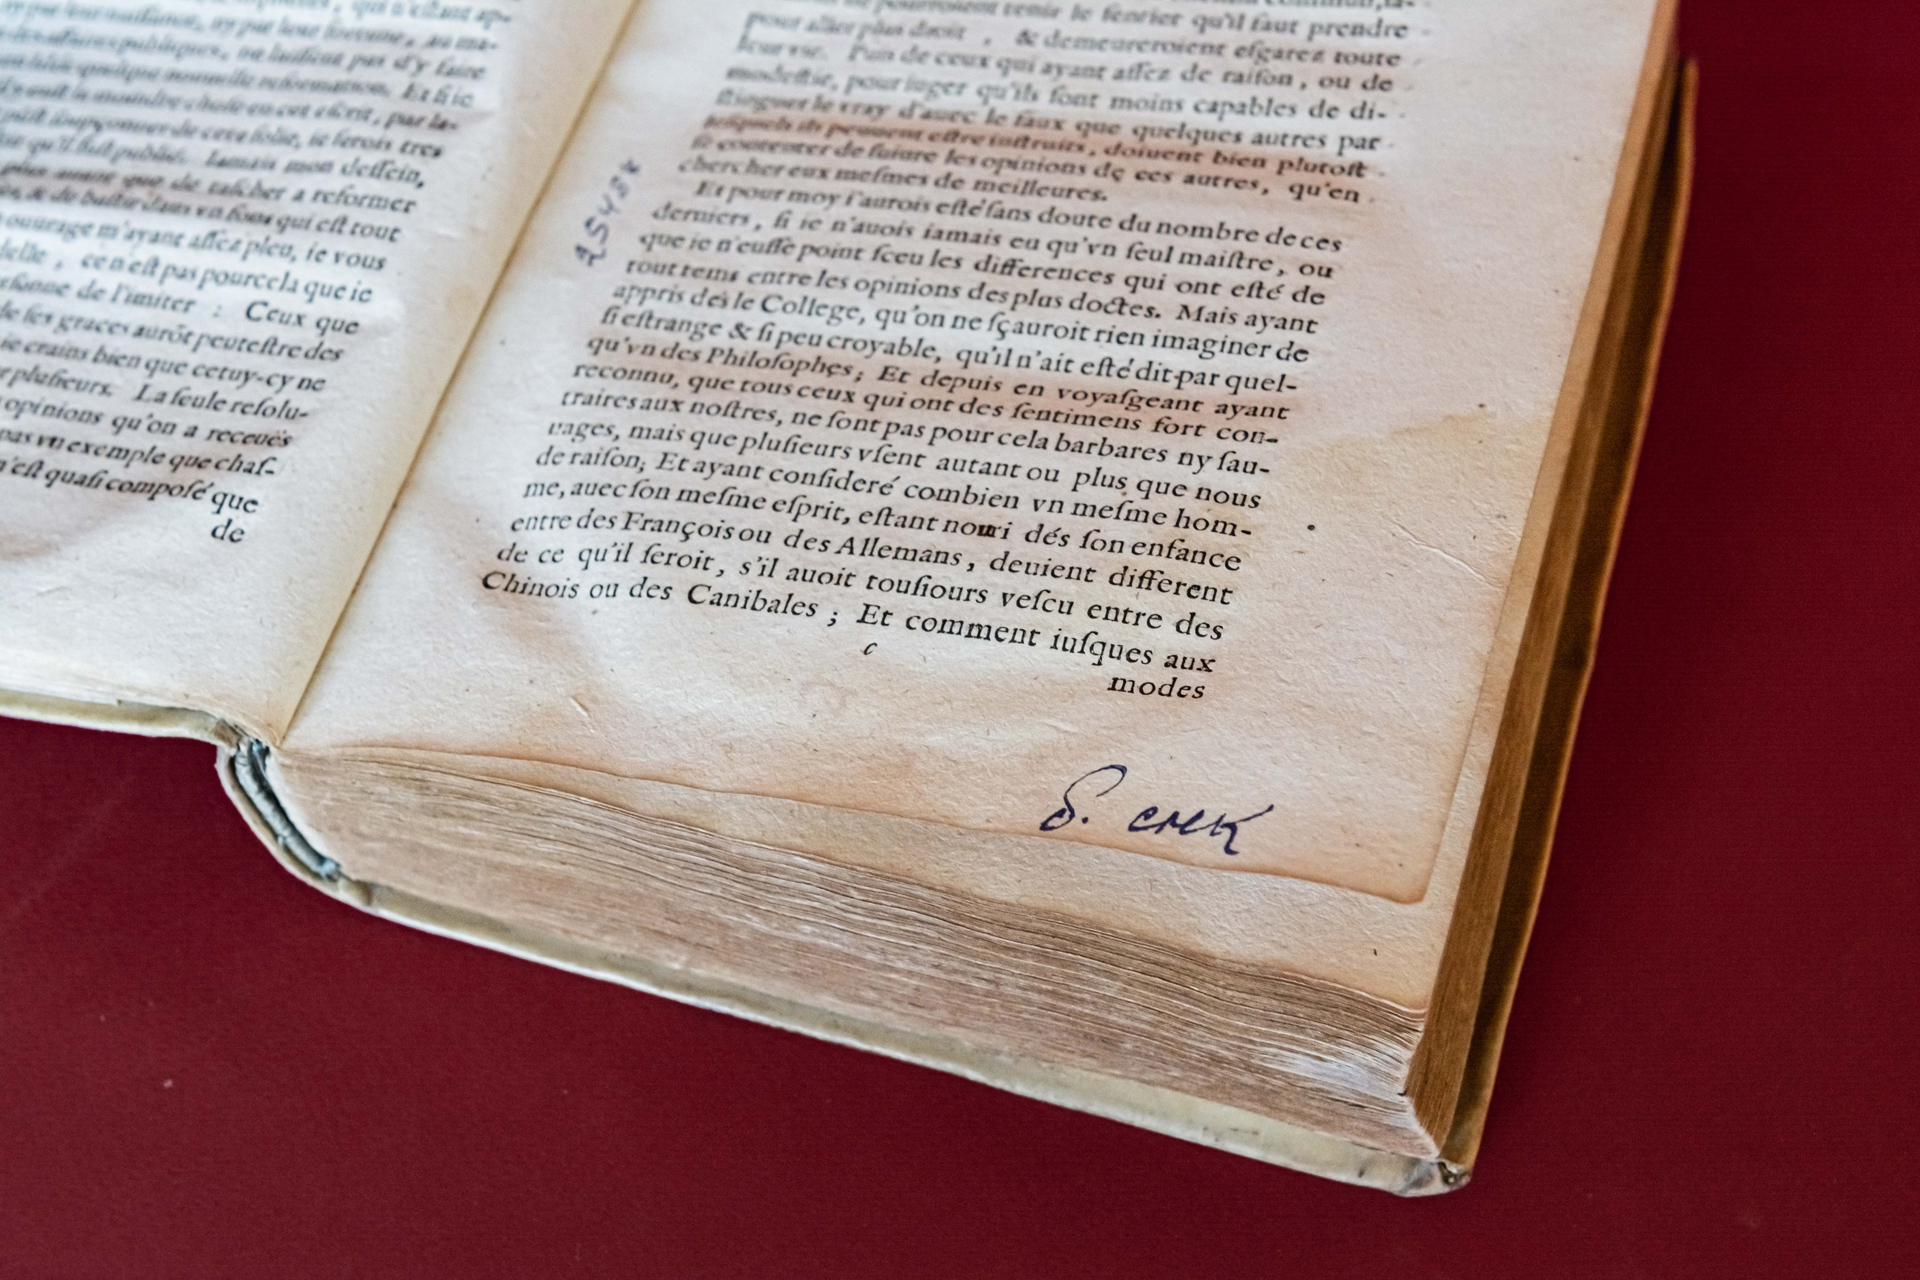 des affaires publiques, ne laissent pas d'y faire
quelque nouvelle reformation. Et si ie
la moindre chose en cet escrit, par la-
soupçonner de cete folie, ie serois tres
qu'il fust publié. Iamais mon dessein,
plus auant que de tascher a reformer
& de bastir dans vn fons qui est tout
ouurage m'ayant assez pleu, ie vous
ce n'est pas pour cela que ie
de l'imiter : Ceux que
de ses graces aurōt peutestre des
ie crains bien que cetuy-cy ne
plusieurs. La seule resolu-
opinions qu'on a receuës
pas vn exemple que chas-
n'est quasi composé que
de
pourroient tenir le sentier qu'il faut prendre
pour aller plus droit, & demeureroient esgarez toute
leur vie. Puis de ceux qui ayant assez de raison, ou de
modestie, pour iuger qu'ils sont moins capables de di-
stinguer le vray d'auec le faux que quelques autres par
lesquels ils peuuent estre instruits, doiuent bien plutost
se contenter de suiure les opinions de ces autres, qu'en
chercher eux mesmes de meilleures.
Et pour moy i'aurois esté sans doute du nombre de ces
derniers, si ie n'auois iamais eu qu'vn seul maistre, ou
que ie n'eusse point sceu les differences qui ont esté de
tout tems entre les opinions des plus doctes. Mais ayant
appris dés le College, qu'on ne sçauroit rien imaginer de
si estrange & si peu croyable, qu'il n'ait esté dit par quel-
qu'vn des Philosophes; Et depuis en voyasgeant ayant
reconnu, que tous ceux qui ont des sentimens fort con-
traires aux nostres, ne sont pas pour cela barbares ny sau-
uages, mais que plusieurs vsent autant ou plus que nous
de raison; Et ayant consideré combien vn mesme hom-
me, auec son mesme esprit, estant nouri dés son enfance
entre des François ou des Allemans, deuient different
de ce qu'il seroit, s'il auoit tousiours vescu entre des
Chinois ou des Canibales ; Et comment iusques aux
c
modes